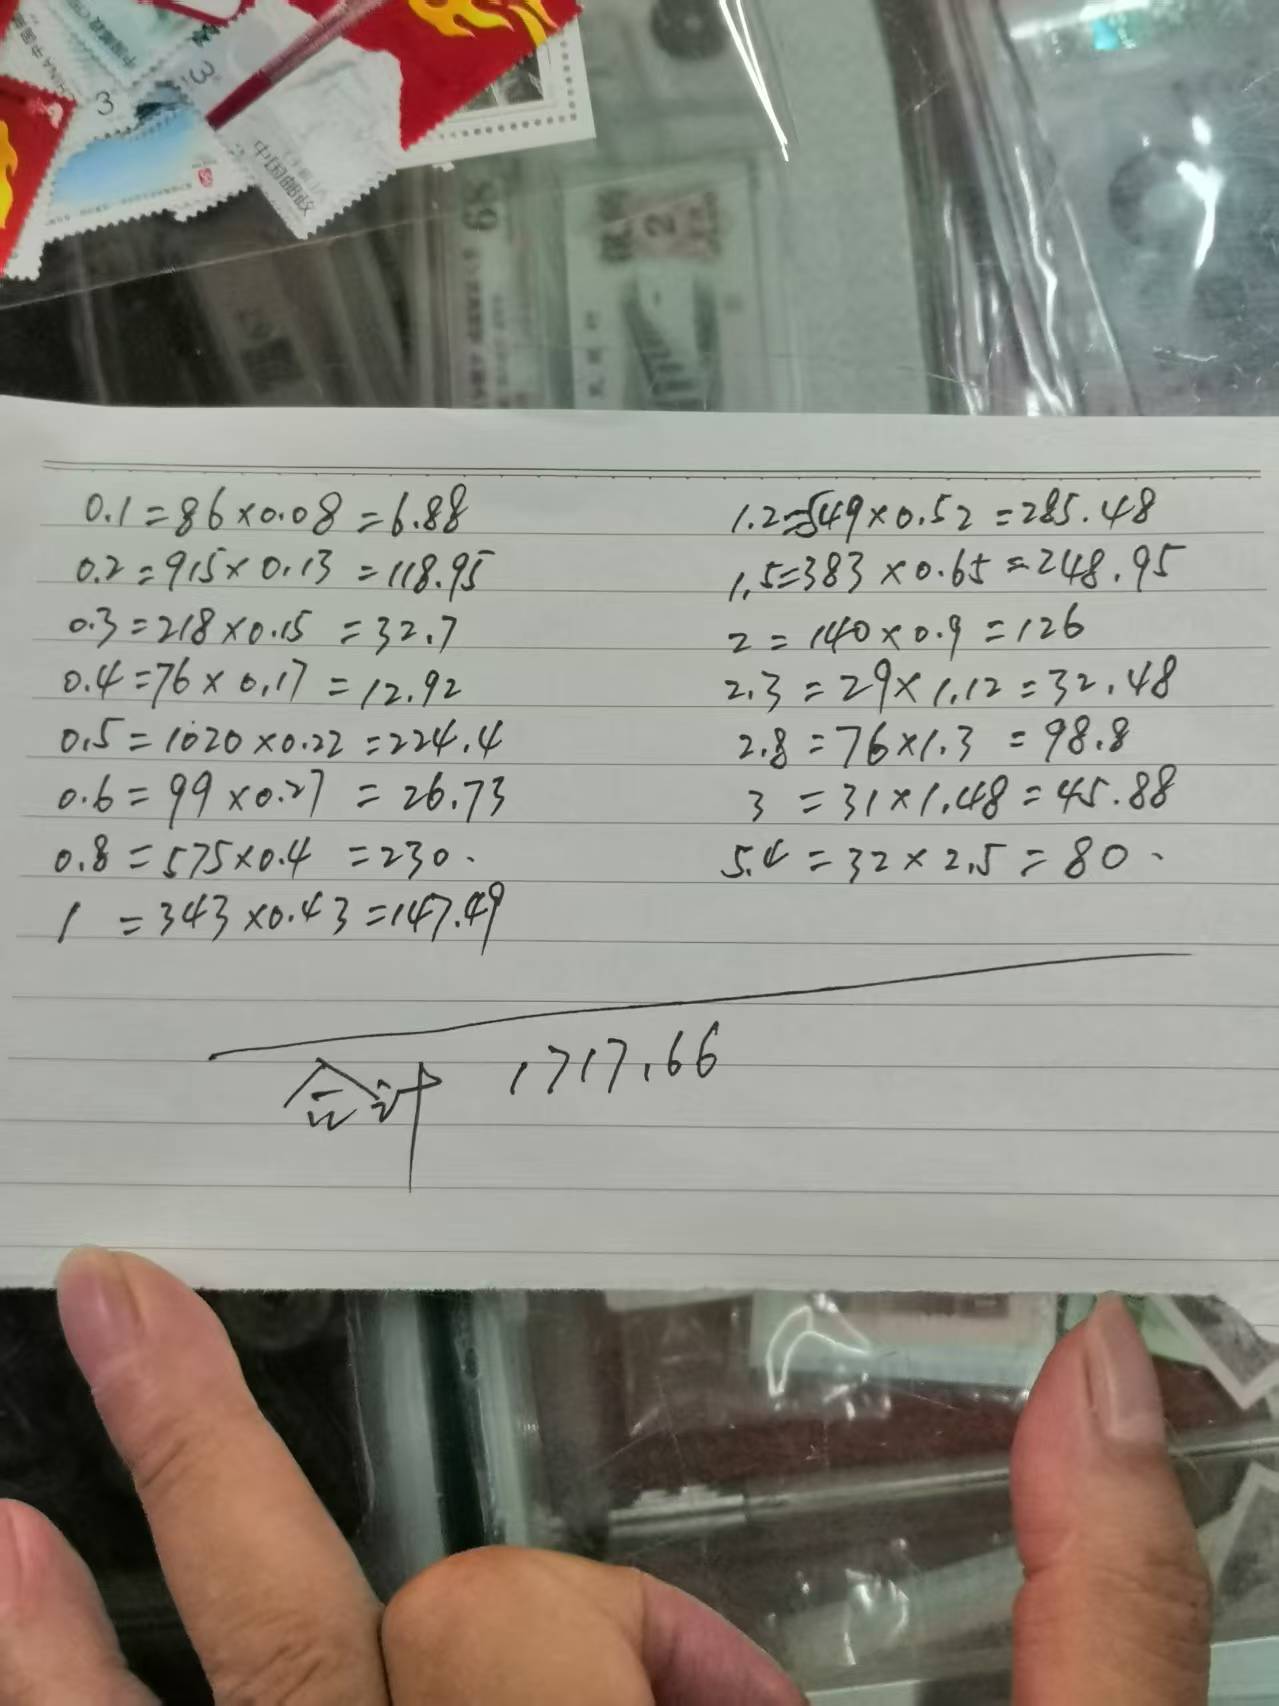 3
3
中国邮政
68
2
0.1=86×0.08=6.88
0.2=915×0.13=118.95
0.3=218×0.15=32.7
0.4=76×0.17=12.92
0.5=1020×0.22=224.4
0.6=99×0.27=26.73
0.8=575×0.4=230.
1=343×0.43=147.49
1.2=549×0.52=285.48
1.5=383×0.65=248.95
2=140×0.9=126
2.3=29×1.12=32.48
2.8=76×1.3=98.8
3=31×1.48=45.88
5.4=32×2.5=80.
合计 1717.66